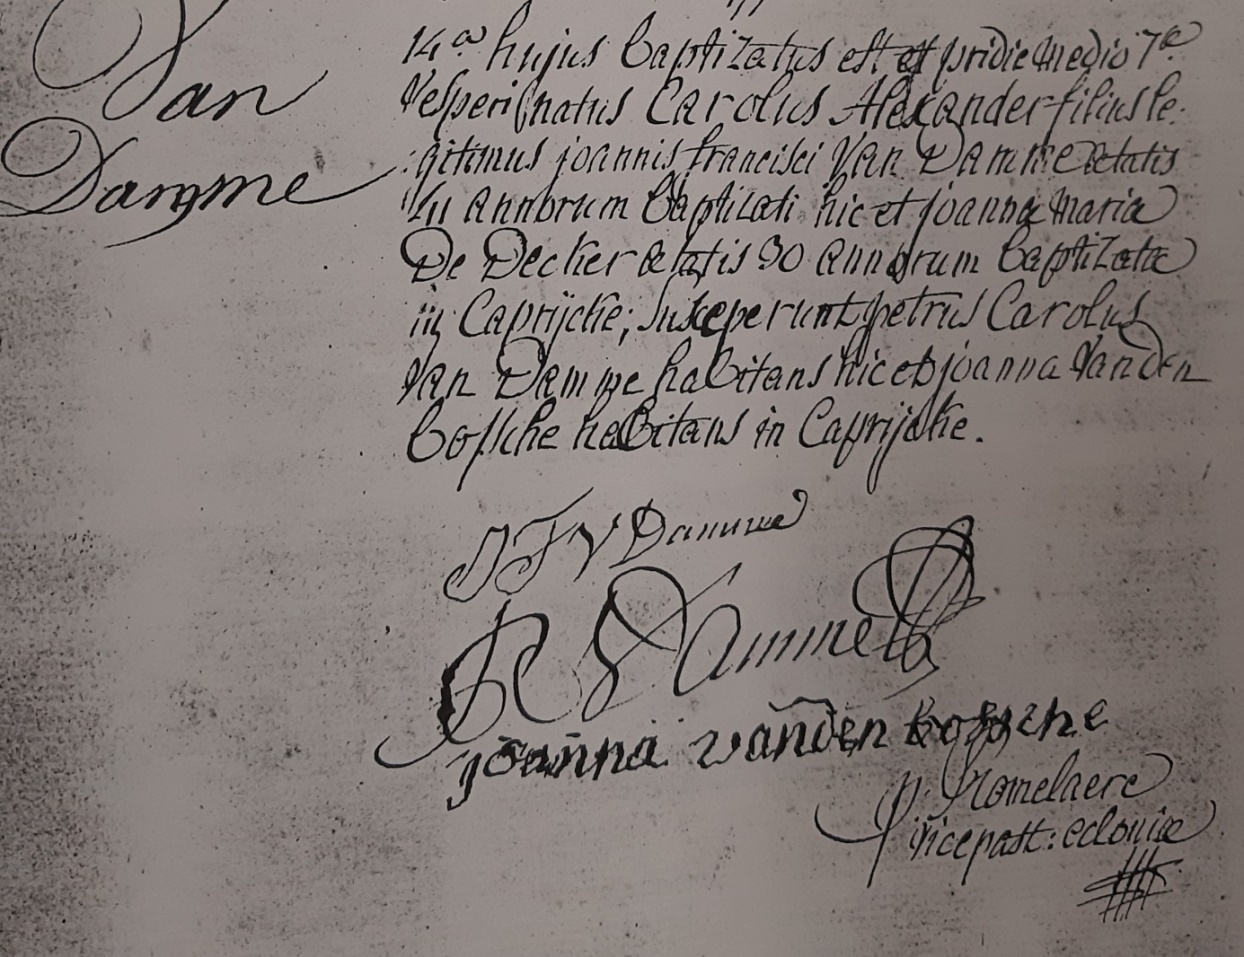 Van
Damme
14a hujus baptizatus est et pridie medio 7a
Vesperi natus Carolus Alexander filius le:
:gitimus joannis francisci Van Damme Ætatis
annorum baptizati hic et joanna Maria
De Decker ætatis 30 annorum baptizatæ
in Caprijcke; susceperunt petrus Carolus
Van Damme habitans hic et joanna Vanden
bossche habitans in Caprijcke.
J F V Damme
Damme
joanna vanden bossche
p. Romelaere
vicepast: ecloniæ